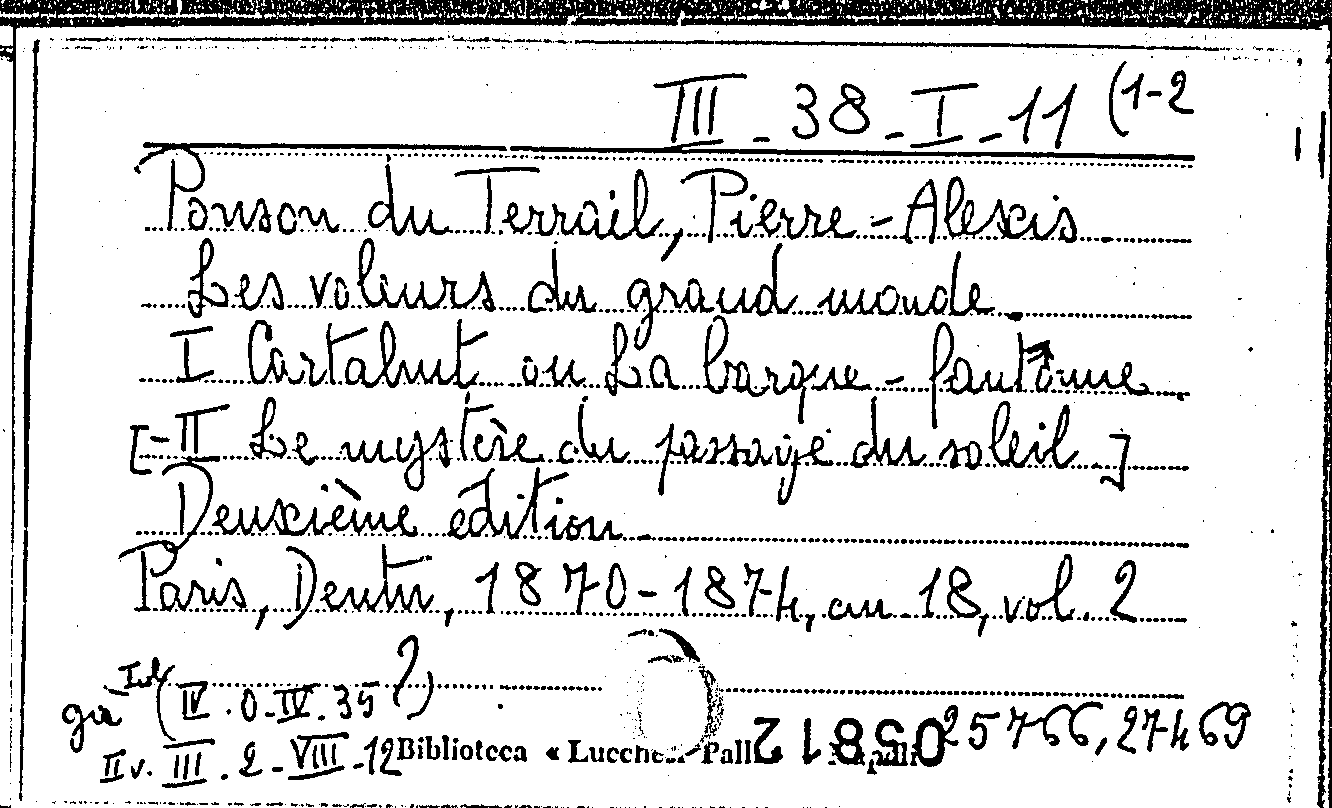 III - 38 - I - 11 (1-2
Ponson du Terrail, Pierre-Alexis
Les voleurs du grand monde.
I Cartahut ou La barque-fantôme.
[-II Le mystère du passage du soleil.]
Deuxième édition.
Paris, Dentu, 1870-1874, au 18, vol. 2
I vol (IV. 0-IV. 35 ?)
già
II v. III. 2-VIII-12
Biblioteca « Lucchesi Palli
058125766, 27469